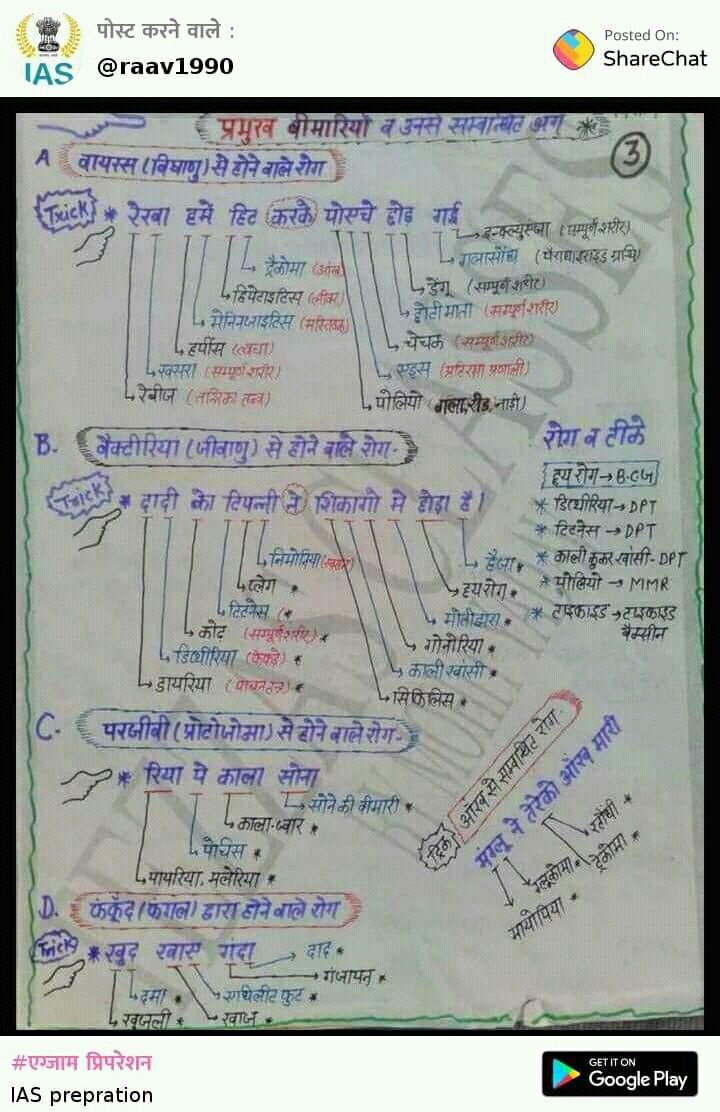 पोस्ट करने वाले :
@raav1990
IAS
Posted On:
ShareChat
प्रमुख बीमारियाँ व उनसे सम्बन्धित अंग
3
A वायरस (विषाणु) से होने वाले रोग
Trick * रेखा हमें हिट करके पोस्चे होड गई
इन्फ्लुएन्जा (सम्पूर्ण शरीर)
गलासोंडा (पैराथाइराइड ग्रन्थि)
डेंगू (सम्पूर्ण शरीर)
छोटी माता (सम्पूर्ण शरीर)
चेचक (सम्पूर्ण शरीर)
एड्स (प्रतिरक्षा प्रणाली)
पोलियो (गला, रीड, नाड़ी)
ट्रैकोमा (आंख)
हिपेटाइटिस (लीवर)
मेनिनजाइटिस (मस्तिष्क)
हर्पीस (त्वचा)
खसरा (सम्पूर्ण शरीर)
रेबीज (तंत्रिका तन्त्र)
B. बैक्टीरिया (जीवाणु) से होने वाले रोग-
Trick * दादी का टिपन्नी ने शिकागो मे होडा है।
निमोनिया
प्लेग *
टिटनेस
कोढ (सम्पूर्ण शरीर) *
डिप्थीरिया (फेफड़े) *
डायरिया (पाचनतन्त्र) *
हैजा *
क्षयरोग *
मोतीझारा *
गोनोरिया *
काली खांसी *
सिफिलिस *
रोग व टीके
क्षय रोग → B.C.G
* डिप्थीरिया → DPT
* टिटनेस → DPT
* काली कुकर खांसी - DPT
* पोलियो → MMR
* टाइफाइड → टाइफाइड
वैक्सीन
C. परजीवी (प्रोटोजोआ) से होने वाले रोग-
* रिया पे काला सोना
सोने की बीमारी *
काला-ज्वार *
पेचिस *
पायरिया, मलेरिया *
ट्रिक आंख से सम्बन्धित रोग
मंगलू ने तेरेको आंख मारी
रतौंधी *
ट्रेकोमा *
ग्लूकोमा *
मायोपिया *
D. फंफूंद (फंगल) द्वारा होने वाले रोग
Trick * खुद खास गंदा
दाद *
गंजापन *
दमा *
एथिलीट फुट *
खुजली *
खाज *
#एग्जाम प्रिपरेशन
IAS prepration
GET IT ON
Google Play